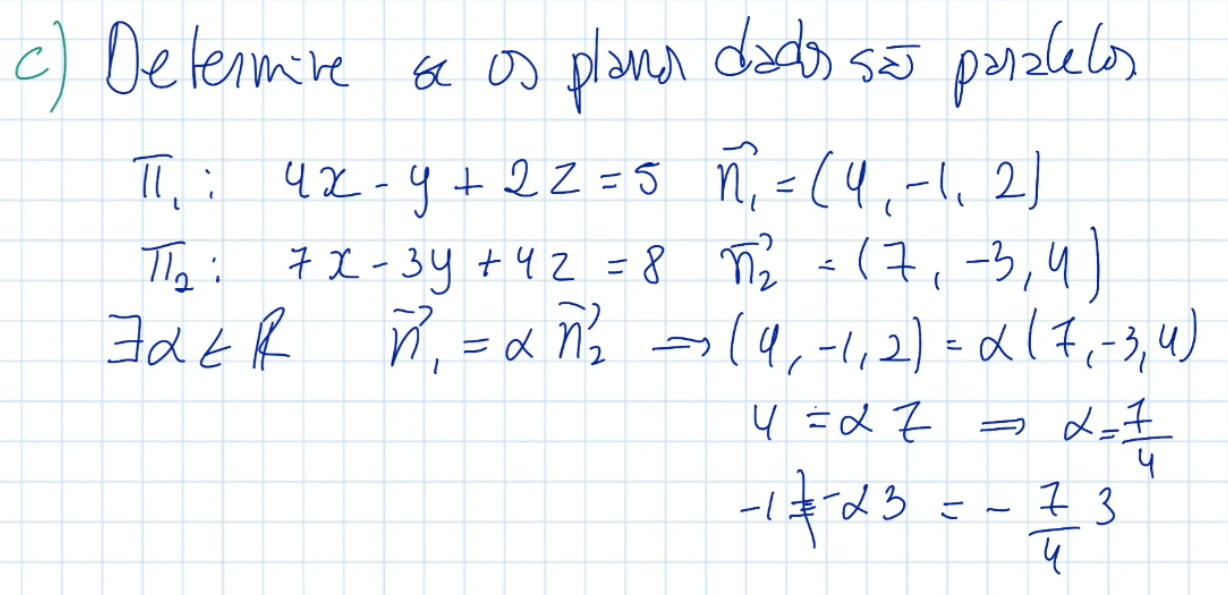 c) Determine se os planos dados são paralelos
π₁: 4x - y + 2z = 5 n⃗₁ = (4, -1, 2)
π₂: 7x - 3y + 4z = 8 n⃗₂ = (7, -3, 4)
∃α ∈ ℝ n⃗₁ = α n⃗₂ ⇒ (4, -1, 2) = α(7, -3, 4)
4 = α 7 ⇒ α = 7/4
-1 ≠ -α 3 = - 7/4 3